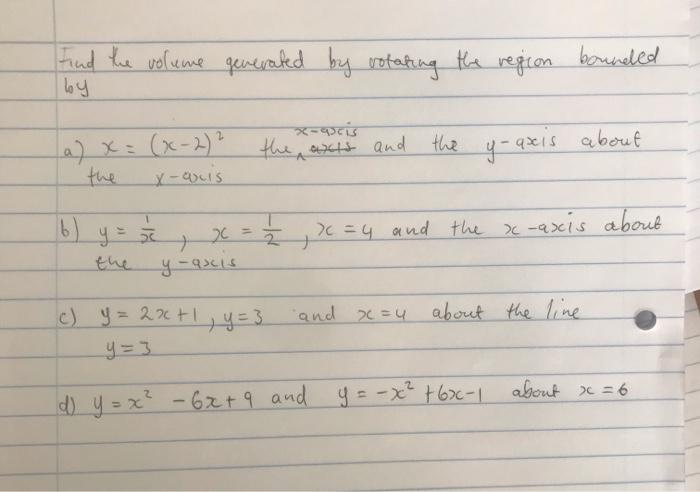 Find the volume generated by rotating the region bounded
by
a) x = (x-2)² the x-axis and the y-axis about
the x-axis
b) y = 1/x , x = 1/2 , x = 4 and the x-axis about
the y-axis
c) y = 2x+1, y=3 and x=4 about the line
y=3
d) y = x² - 6x + 9 and y = -x² +6x-1 about x=6